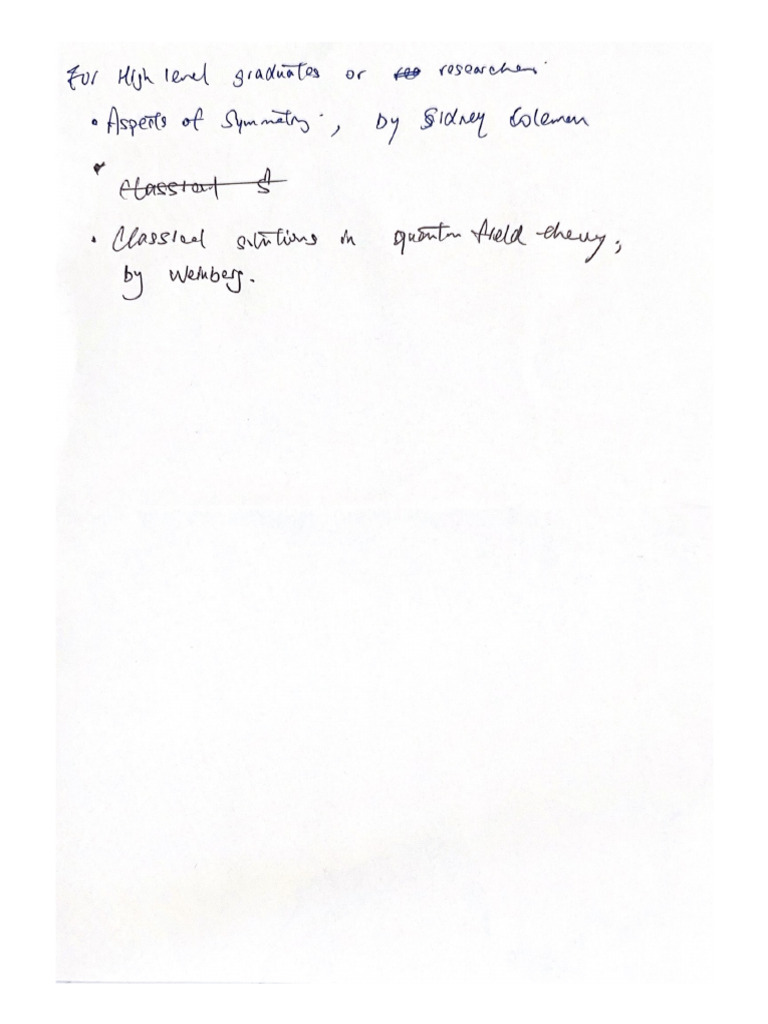 For High level graduates or researchers.
• Aspects of Symmetry, by Sidney Coleman
• Classical S
• Classical solutions in quantum field theory,
by Weinberg.